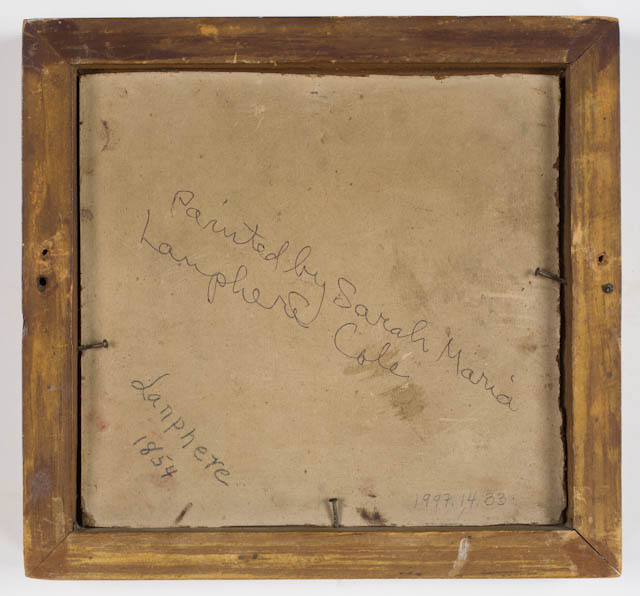 Painted by Sarah Maria
Lanphere Cole
Lanphere
1854
1997.14.33